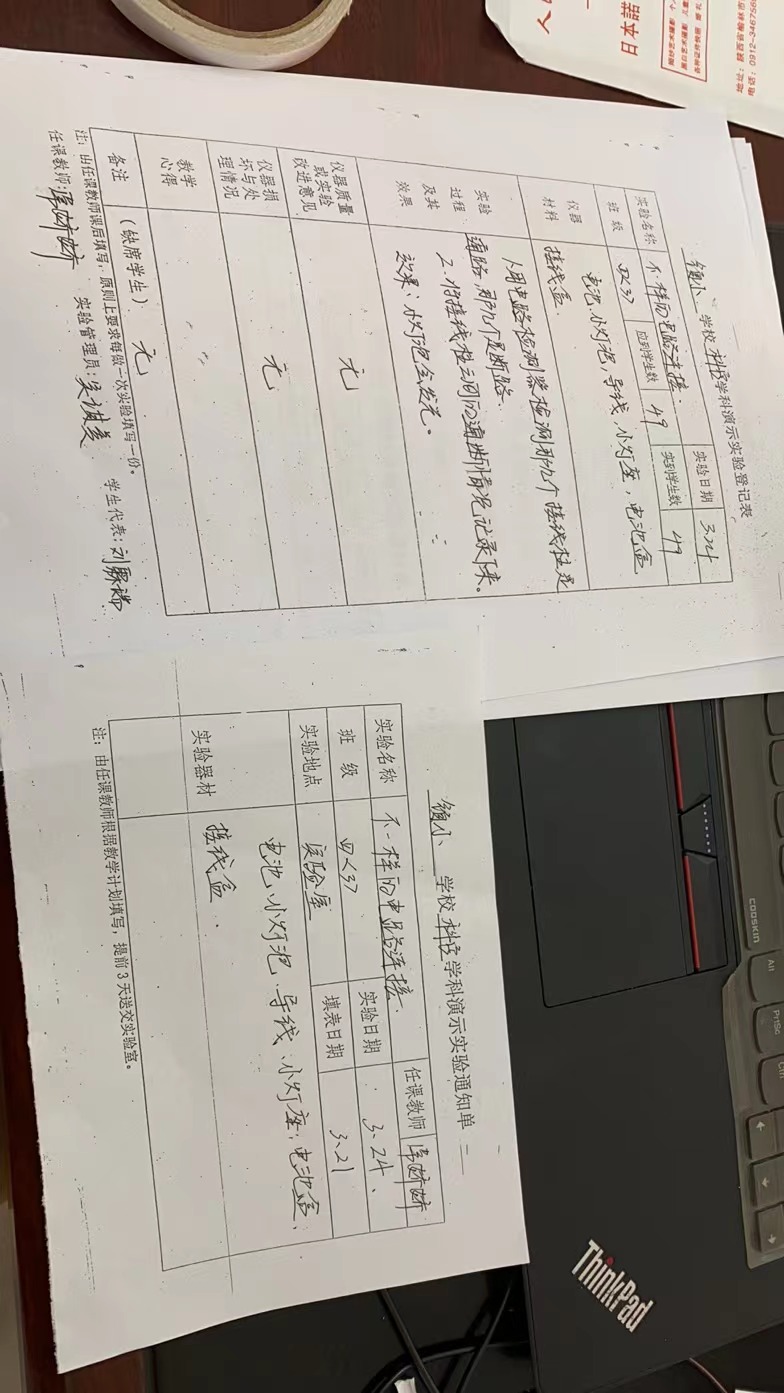 镇小 学校 科技 学科演示实验登记表
实验名称 不一样的电路连接. 实验日期 3.24
班 级 四<3> 应到学生数 49 实到学生数 49
仪器材料 电池、小灯泡, 导线, 小灯座, 电池盒
接线盒.
实验过程及其效果 1.用电路检测器检测那几个接线柱是
通路,那几个是断路.
2.将接线柱之间的通断情况记录下来。
效果:小灯泡会发光。
仪器质量或实验改进意见 无
仪器损坏与处理情况 无
教学心得
备注 (缺席学生) 无
注:由任课教师课后填写,原则上要求每做一次实验填写一份。
任课教师: 实验管理员: 学生代表:
镇小、 学校 科技 学科演示实验通知单
实验名称 不一样的电路连接. 任课教师
班 级 四<3> 实验日期 3.24、
实验地点 实验室 填表日期 3.21
实验器材 电池、小灯泡、导线、小灯座; 电池盒,
接线盒.
注:由任课教师根据教学计划填写,提前3天送交实验室。
日本語
地址:陕西省榆林市
电话:0912-3467566
COOSKIN
Alt
PrtSc
Ctrl
ThinkPad